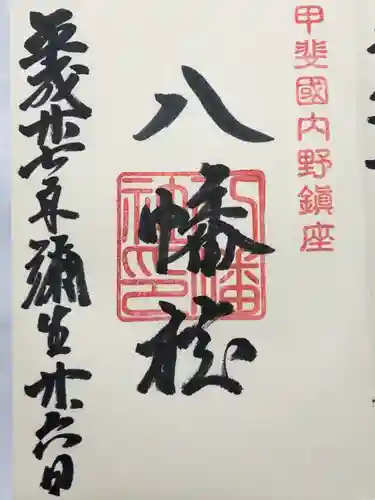 甲斐國内野鎮座
八幡社
八幡
神印
平成廿七年彌生廿六日